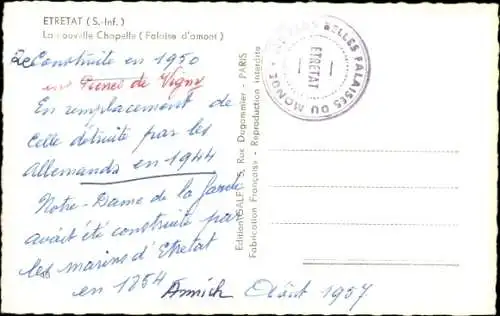 ETRETAT (S.-Inf.)
La nouvelle Chapelle (Falaise d'amont)
Reconstruite en 1950
en Pierres de Vigny
En remplacement de
Celle détruite par les
Allemands en 1944
Notre-Dame de la Garde
avait été construite par
les marins d'Etretat
en 1854
Annick Août 1957
Edition GALF, 5, Rue Dagommier - PARIS
Fabrication Française - Reproduction interdite
LES PLUS BELLES FALAISES DU MONDE
ETRETAT